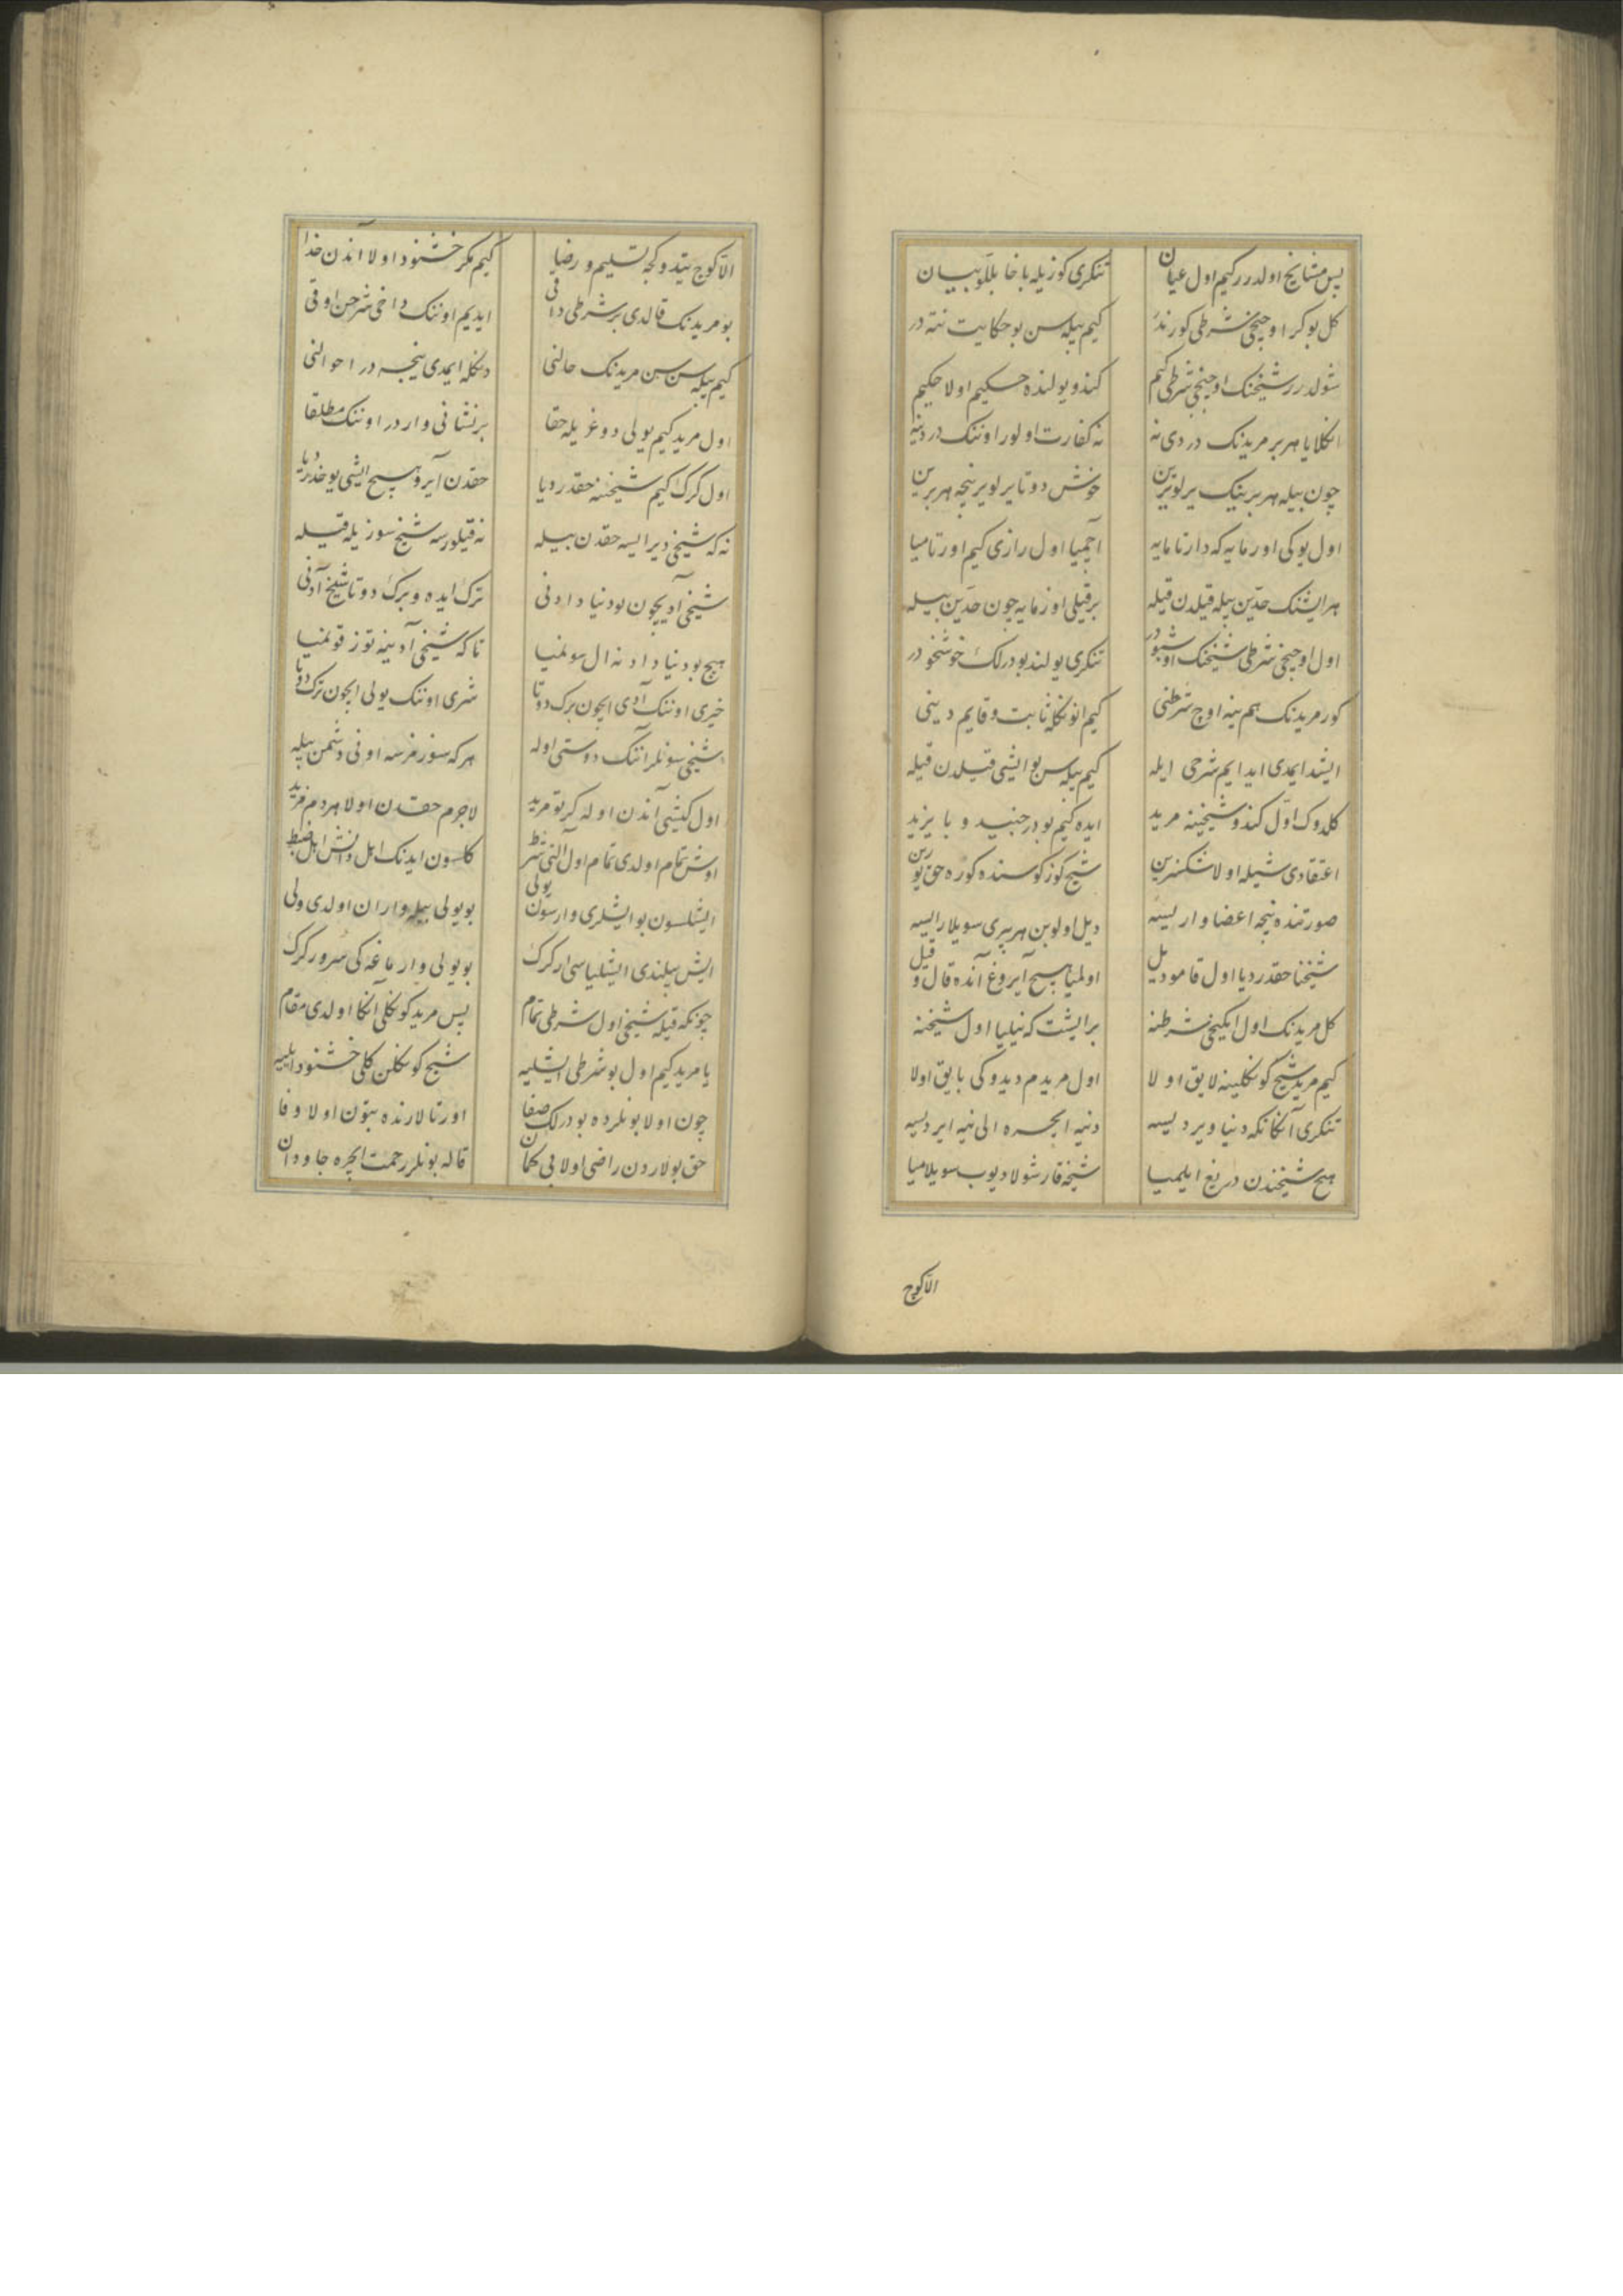 پس مشایخ اولدرر کیم اول عیان تنکری کوزیله باخا بللو بیان
کل بو کز اوچنجی شرطی کور ندر کیم بیله سن بو حکایت نته در
شولدرر شیخنک اوچنجی شرطی کیم کندو یولنده حکیم اولا حکیم
انکلایا هر بر مریدنک دردی نه نه کفارت اولور اوننک دردینه
چون بیله هر برینک یرلو یرین خوش دوتا یرلو یرینجه هر برین
اول یوکی اورمایه که دارتامایه آچمیا اول رازی کیم اورتامیا
هر ایشنک حدین بیله قیلدن قیله بر قیلی اوزمایه چون حدین بیله
اول اوچنجی شرطی شیخنک اوشبودر تنکری یولند بودرلک خوشخودر
کور مریدنک هم ینه اوچ شرطنی کیم انونکله ثابت و قایم دینی
ایشد ایمدی ایدایم شرحی ایله کیم بیله سن بو ایشی قیلدن قیله
کلدوک اول کندو شیخینه مرید ایده کیم بودر جنید و بایزید
اعتقادی شیله اولا شکسزین شیخ کوزکوسنده کوره حق یوزین
صورتنده نیجه اعضا وار ایسه دیل اولوبن هر بیری سویلار ایسه
شیخنا حقدر دیا اول قامو دیل اولمیا هیچ آیروغ آنده قال و قیل
کل مریدنک اول ایکنجی شرطنه بر ایشت که نیلیا اول شیخنه
کیم مرید شیخ کونکلینه لایق اولا اول مریدم دیدوکی بایق اولا
تنکری آنکا نکه دنیا ویردیسه دنیه ایچره الی نیه ایردیسه
هیچ شیخندن دریغ ایلمیا شیخه قارشو لا دیوب سویلامیا
الا کوچ
الا کوچ یتدوکجه تسلیم و رضایا کیم مکر خشنود اولا آندن خدا
بو مریدنک قالدی بر شرطی داقی ایدیم اوننک داخی شرحن اوقی
کیم بیله سن سن مریدنک حالنی دنکله ایمدی نیجه در احوالنی
اول مرید کیم یولی دوغریله حقا بر نشانی واردر اوننک مطلقا
اول کرک کیم شیخنه حقدر دیا حقدن آیرو هیچ ایشی یوخدر دیا
نه که شیخی دیر ایسه حقدن بیله نه قیلورسه شیخ سوزیله قیله
شیخی آدیچون بو دنیا دادنی ترک ایده و برک دوتا شیخ آدنی
هیچ بو دنیا دادنه ال سونمیا تا که شیخی آدینه توز قونمیا
خیری اوننک آدی ایچون برک دوتا شری اوننک یولی ایچون ترک دوتا
شیخی سونلر آننک دوستی اوله هر که سوزمرسه اونی دشمن بیله
اول کیشی آندن اوله کرتو مرید لاجرم حقدن اولا هر دم مزید
اوش تمام اولدی تمام اول التی شرط کلسون ایدنک اهل دانش اهل ضبط
ایشلسون بو ایشلری وارسون یولی بو یولی بیله واران اولدی ولی
ایش بیلندی ایشلیاسی ار کرک بو یولی وارماغه کی سرور کرک
چونکه قیله شیخی اول شرطی تمام پس مرید کونکلی آنکا اولدی مقام
یا مرید کیم اول بو شرطی ایشلیه شیخ کونکلن کلی خشنود ایلیه
چون اولا بونلرده بودرلک صفا اورتالارنده بتون اولا وفا
حق بولاردن راضی اولا بی کمان قاله بونلر رحمت ایچره جاودان